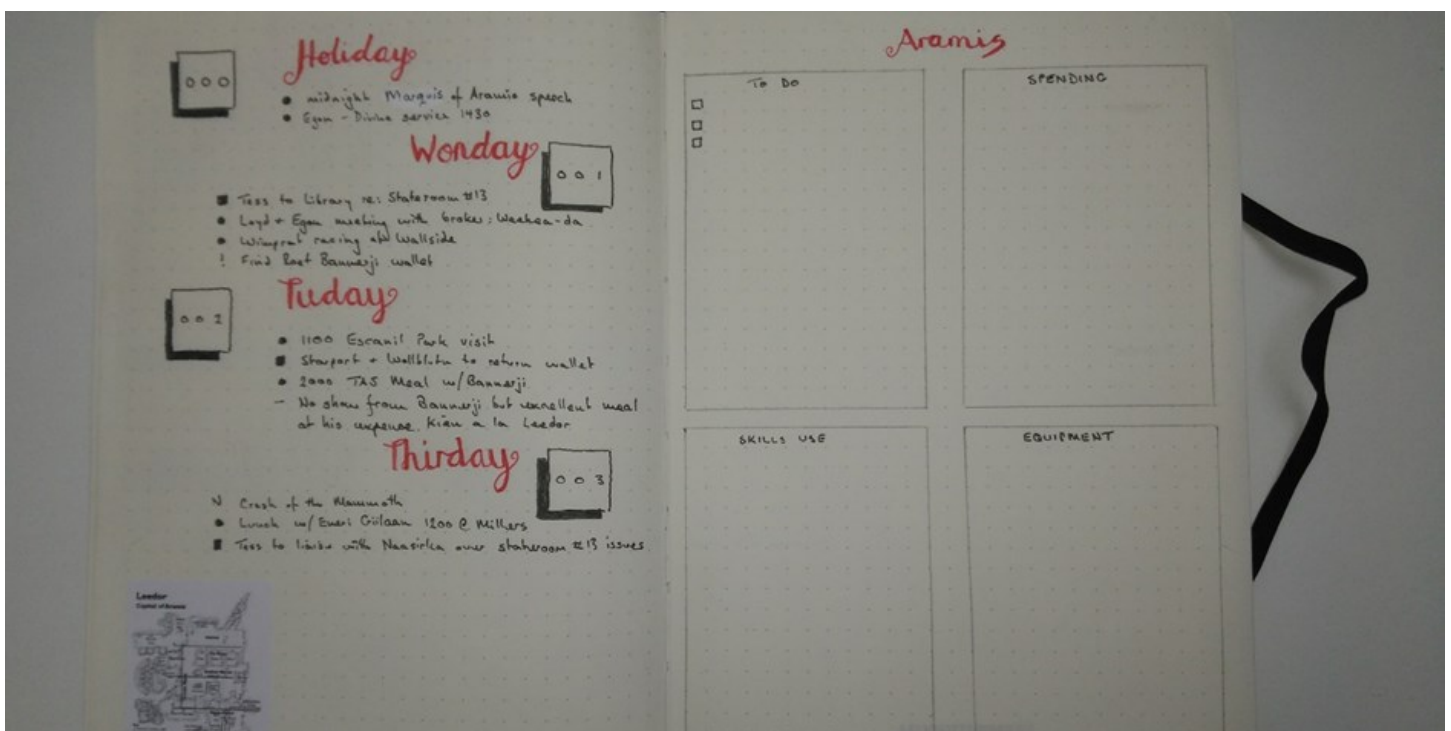 Holiday
000
• midnight Marquis of Aramis speech
• Egon - Divine service 1430
Wonday
001
■ Tess to Library re: Stateroom #13
• Loyd + Egon meeting with broker: Weehea-da
• Wimprat racing at Wallside
! Find Bannerji wallet
Tuday
002
• 1100 Escanil Park visit
■ Starport + to return wallet
• 2000 TAS Meal w/Bannerji
- No show from Bannerji but excellent meal
at his expense. Kian a la Leedor
Thirday
003
N Crash of the Mammoth
• Lunch w/Eneri Giilaan 1200 @ Millers
■ Tess to liaise with Naasirka over stateroom #13 issues
Leedor
Capital of Aramis
Aramis
TO DO
SPENDING
SKILLS USE
EQUIPMENT